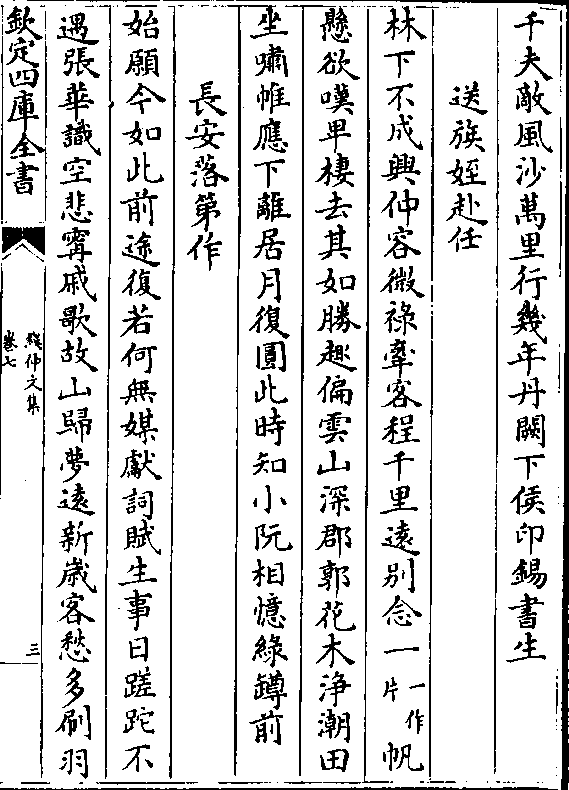 千夫敵風沙萬里行幾年丹闕下侯印錫書生
送族姪赴任
林下不成興仲容微祿牽客程千里遠别念一一作片帆
懸欲嘆卑棲去其如勝趣偏雲山深郡郭花木浄潮田
坐嘯帷應下離居月復圓此時知小阮相憶綠罇前
長安落第作
始願今如此前途復若何無媒獻詞賦生事日蹉跎不
遇張華識空悲寗戚歌故山歸夢遠新歳客愁多刷羽
欽定四庫全書
錢仲文集
卷七
三